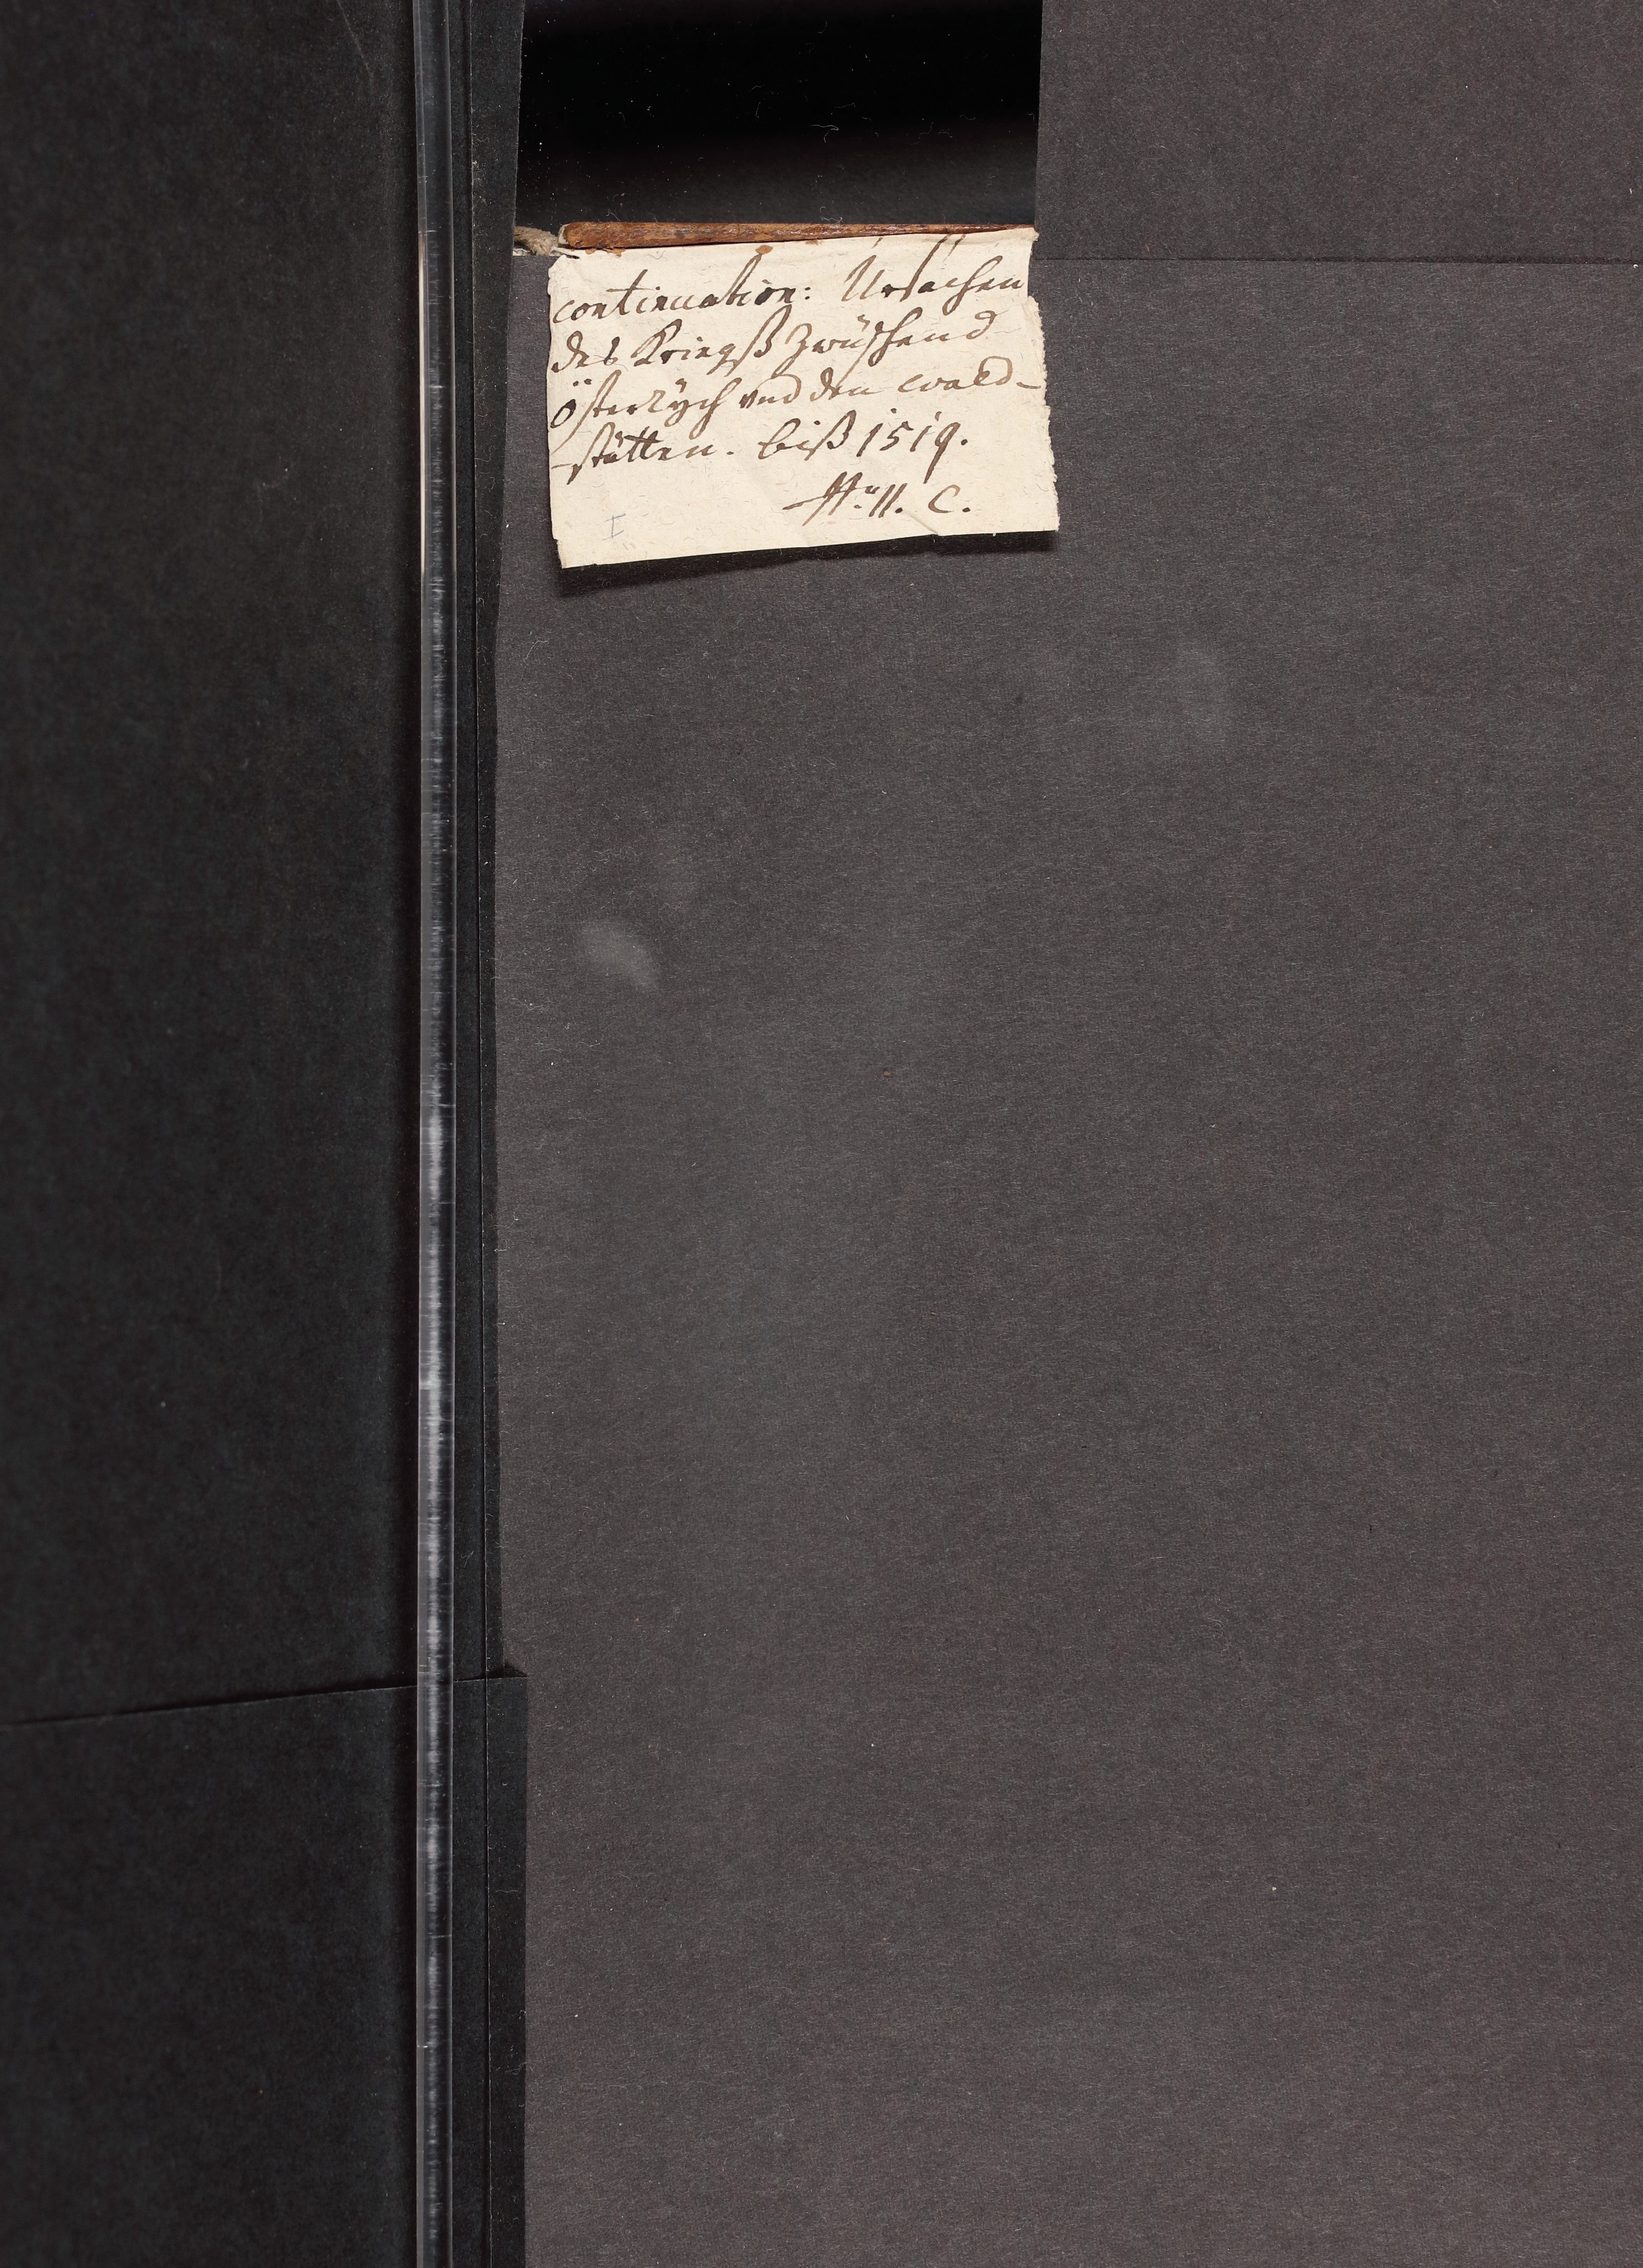 continuation: Ursachen
des Kriegß zwüschend
Österrÿch vnd den wald-
-stätten. biß 1519.
11. C.
I